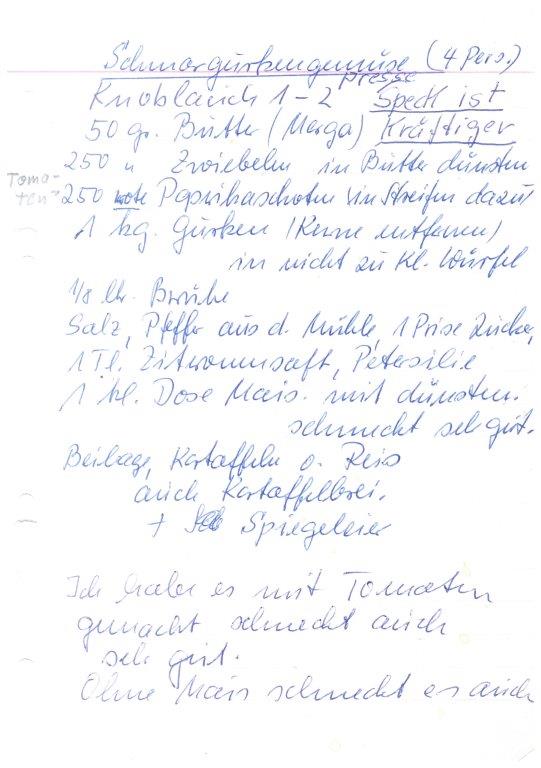 Schmorgurkengemüse (4 Pers.)
Knoblauch 1-2 presse Speck ist
50 gr. Butter (Marga) Kräftiger
250 " Zwiebeln in Butter dünsten
Toma-
ten =
250 rote Paprikaschoten in Streifen dazu
1 kg. Gurken (Kerne entfernen)
in nicht zu kl. Würfel
1/8 ltr. Brühe
Salz, Pfeffer aus d. Mühle, 1 Prise Zucker,
1 Tl. Zitronensaft, Petersilie
1 kl. Dose Mais. mit dünsten.
schmeckt seh gut.
Beilage, Kartoffeln o. Reis
auch Kartoffelbrei.
+ Spiegeleier
Ich habe es mit Tomaten
gemacht schmeckt auch
seh gut.
Ohne Mais schmeckt es auch